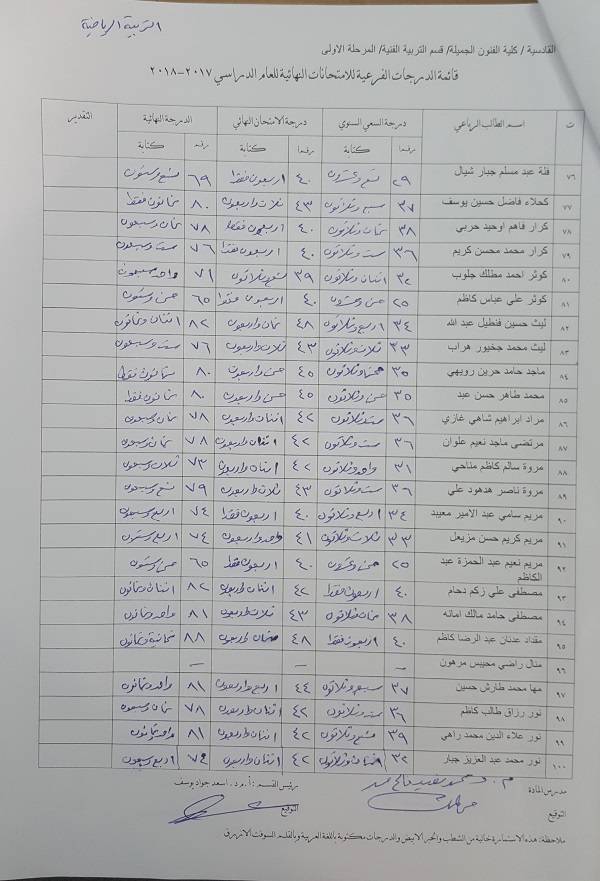 التربية الرياضية
القادسية / كلية الفنون الجميلة/ قسم التربية الفنية/ المرحلة الاولى
قائمة الدرجات الفرعية للامتحانات النهائية للعام الدراسي ٢٠١٧-٢٠١٨
ت اسم الطالب الرباعي درجة السعي السنوي درجة الامتحان النهائي الدرجة النهائية التقدير
رقما كتابة رقما كتابة رقما كتابة
٧٦ فلة عبد مسلم جبار شيال ٢٩ تسع وعشرون ٤٠ اربعون فقط ٦٩ تسع وستون
٧٧ كحلاء فاضل حسين يوسف ٣٧ سبع وثلاثون ٤٣ ثلاث واربعون ٨٠ ثمانون فقط
٧٨ كرار فاهم اوحيد حربي ٣٨ ثمان وثلاثون ٤٠ اربعون فقط ٧٨ ثمان وسبعون
٧٩ كرار محمد محسن كريم ٣٦ ست وثلاثون ٤٠ اربعون فقط ٧٦ ست وسبعون
٨٠ كوثر احمد مطلك جلوب ٣٢ اثنان وثلاثون ٣٩ تسع وثلاثون ٧١ واحد وسبعون
٨١ كوثر علي عباس كاظم ٢٥ خمس وعشرون ٤٠ اربعون فقط ٦٥ خمس وستون
٨٢ ليث حسين فنطيل عبد الله ٣٤ اربع وثلاثون ٤٨ ثمان واربعون ٨٢ اثنان وثمانون
٨٣ ليث محمد جخيور هراب ٣٣ ثلاث وثلاثون ٤٣ ثلاث واربعون ٧٦ ست وسبعون
٨٤ ماجد حامد حرين رويهي ٣٥ خمس وثلاثون ٤٥ خمس واربعون ٨٠ ثمانون فقط
٨٥ محمد طاهر حسن عبد ٣٥ خمس وثلاثون ٤٥ خمس واربعون ٨٠ ثمانون فقط
٨٦ مراد ابراهيم شاهي غازي ٣٦ ست وثلاثون ٤٢ اثنان واربعون ٧٨ ثمان وسبعون
٨٧ مرتضى ماجد نعيم علوان ٣٦ ست وثلاثون ٤٢ اثنان واربعون ٧٨ ثمان وسبعون
٨٨ مروة سالم كاظم مناحي ٣١ واحد وثلاثون ٤٢ اثنان واربعون ٧٣ ثلاث وسبعون
٨٩ مروة ناصر هدهود علي ٣٦ ست وثلاثون ٤٣ ثلاث واربعون ٧٩ تسع وسبعون
٩٠ مريم سامي عبد الامير معيبد ٣٤ اربع وثلاثون ٤٠ اربعون فقط ٧٤ اربع وسبعون
٩١ مريم كريم حسن مزيعل ٣٣ ثلاث وثلاثون ٤١ واحد واربعون ٧٤
٩٢ مريم نعيم عبد الحمزة عبد الكاظم ٢٥ خمس وعشرون ٤٠ اربعون فقط ٦٥ خمس وستون
٩٣ مصطفى علي زكم دحام ٤٠ اربعون فقط ٤٢ اثنان واربعون ٨٢ اثنان وثمانون
٩٤ مصطفى حامد مالك امانه ٣٨ ثمان وثلاثون ٤٣ ثلاث واربعون ٨١ واحد وثمانون
٩٥ مقداد عدنان عبد الرضا كاظم ٤٠ اربعون فقط ٤٨ ثمان واربعون ٨٨ ثمانية وثمانون
٩٦ منال راضي محيبس مرهون – – –
٩٧ مها محمد طارش حسين ٣٧ سبع وثلاثون ٤٤ اربع واربعون ٨١ واحد وثمانون
٩٨ نور رزاق طالب كاظم ٣٦ ست وثلاثون ٤٢ اثنان واربعون ٧٨ ثمان وسبعون
٩٩ نور علاء الدين محمد راهي ٣٩ تسع وثلاثون ٤٢ اثنان واربعون ٨١ واحد وثمانون
١٠٠ نور محمد عبد العزيز جبار ٣٢ اثنان وثلاثون ٤٢ اثنان واربعون ٧٤ اربع وسبعون
مدرس المادة رئيس القسم : أ.م.د. اسعد جواد يوسف
التوقيع التوقيع
ملاحظة: هذه الاستمارة خالية من الشطب والحبر الابيض والدرجات مكتوبة باللغة العربية وبالقلم السوفت الازرق